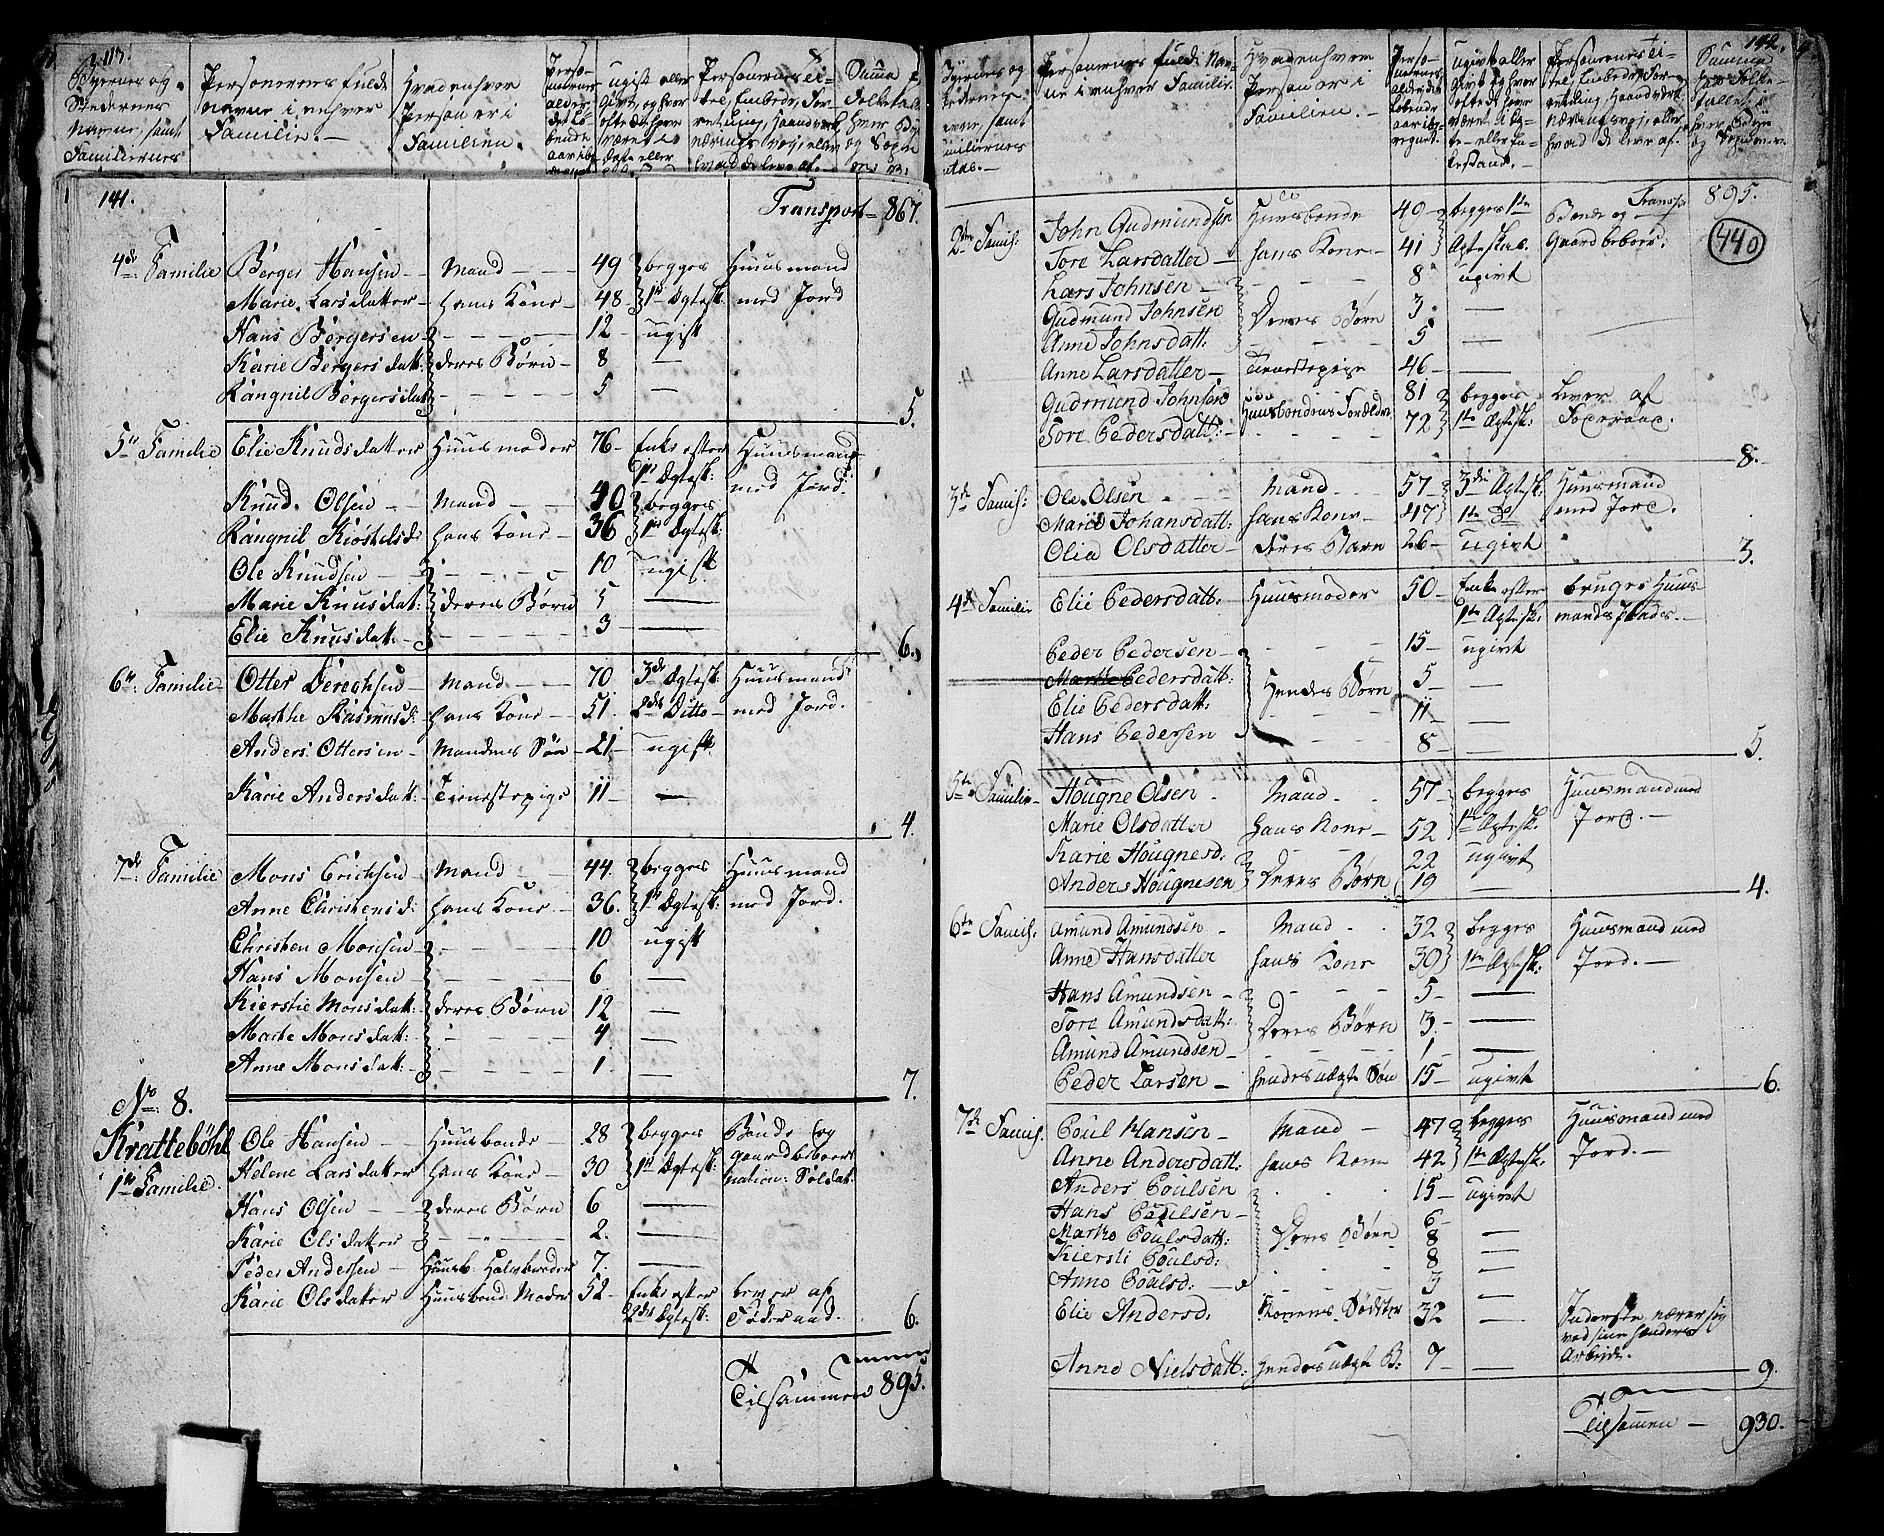 141.
Transport 867.
4de Familie Berger Hansen Mand 49 begges Huusmand
Marie Larsdatter hans Kone 48 1te Ægtesk: med Jord
Hans Bergersen 12 ugift
Karie Bergersdatt: deres Børn 8 —
Rangnil Bergersdatt 5 —
5.
5te Familie Elie Knudsdatter Huusmoder 76 Enke efter Huusmand
1te Ægtesk: med Jord.
Knud Olsen Mand 40 begges
Rangnil Kiøstelsd: hans Kone 36 1te Ægtesk:
Ole Knudsen 10 ugift
Marie Knudsdat: deres Børn 5 —
Elie Knudsdatt: 3 —
6.
6te Familie Otter Derechsen Mand 70 3de Ægtesk: Huusmand
Marthe Rasmusd: hans Kone 51. 2det Ditto med Jord.
Anders Ottersen Mandens Søn 21 ugift
Karie Andersdatt: Tienestepige 11 —
4.
7de Familie Mons Erichsen Mand 44. begges Huusmand
Anne Christensd: hans Kone 36. 1te Ægtesk: med Jord.
Christen Monsen 10 ugift
Hans Monsen 6 —
Kierstie Monsdatt: deres Børn 12 —
Marte Monsdatt: 4. —
Anne Monsdatt: 1. —
7.
No: 8.
Krattebøhl
1te Familie. Ole Hansen Huusbonde 28 begges Bonde og
Helene Larsdatter hans Kone 30 1te Ægtesk: gaardbeboer
nation: Soldat.
Hans Olsen deres Børn 6 —
Karie Olsdatter 2. —
Peder Andersen Huusb: Halvbroder 7. —
Karie Olsdatter Huusbond: Moder 52 Enke efter lever af
2det Ægtesk: Føderaad.
6.
Tilsammen 895.
142.
Personernes fulde Navne i enhver Familie.
Hvad enhver Person er i Familien.
Transp: 895.
440
2den Famil: John Gudmundsen Huusbonde 49 begges 1te Bonde og
Tore Larsdatter hans Kone 41 Ægteskab. Gaardbeboer.
Lars Johnsen 8 ugivt
Gudmund Johnsen Deres Børn 3 —
Anne Johnsdatt: 5 —
Anne Larsdatter Tienestepige 46 —
Gudmund Johnsen Huusbondens Forældre 81 begges Lever af
Tore Pedersdatt: 72 1te Ægtesk: Føderaad.
8.
3de Famil: Ole Olsen Mand 57 3die Ægtesk: Huusmand
Marie Johansdatt: hans Kone 47 1te Do med Jord.
Olia Olsdatter deres Barn 26 ugivt
3.
4de Familie Elie Pedersdatt: Huusmoder 50 Enke efter bruges Huus-
1te Ægtesk: mandsplads.
Peder Pedersen 15 ugivt
Marthe Pedersdatt: 5 —
Elie Pedersdatt: Hendes Børn 11 —
Hans Pedersen 8 —
5.
5te Familie Hougne Olsen Mand 57 begges Huusmand med
Marie Olsdatter hans Kone 52 1te Ægtesk. Jord.
Karie Hougnesd: Deres Børn 22 ugivt
Anders Hougnesen 19 —
4.
6te Famil: Amund Amundsen Mand 32 begges Huusmand med
Anne Hansdatter hans Kone 39 1te Ægtesk: Jord.
Hans Amundsen 5 —
Tore Amundsdatt: Deres Børn 3 —
Amund Amundsen 1 —
Peder Larsen hendes uægte Søn 15 ugivt
6.
7de Famil: Poul Hansen Mand 47 begges Huusmand med
Anne Andersdatt: hans Kone 42 1te Ægtesk. Jord.
Anders Poulsen 15 ugivt
Hans Poulsen 6
Poulsdatt: Deres Børn 8 —
Kiersti Poulsd: 8 —
Anne Poulsd: 3 —
Elie Andersd: Konens Sødster 32 — Inderste, nærer sig
ved sine Hænders
Anne Nielsdatt: hendes uægte B: 7 — Arbeide.
9.
Tilsamen 930.